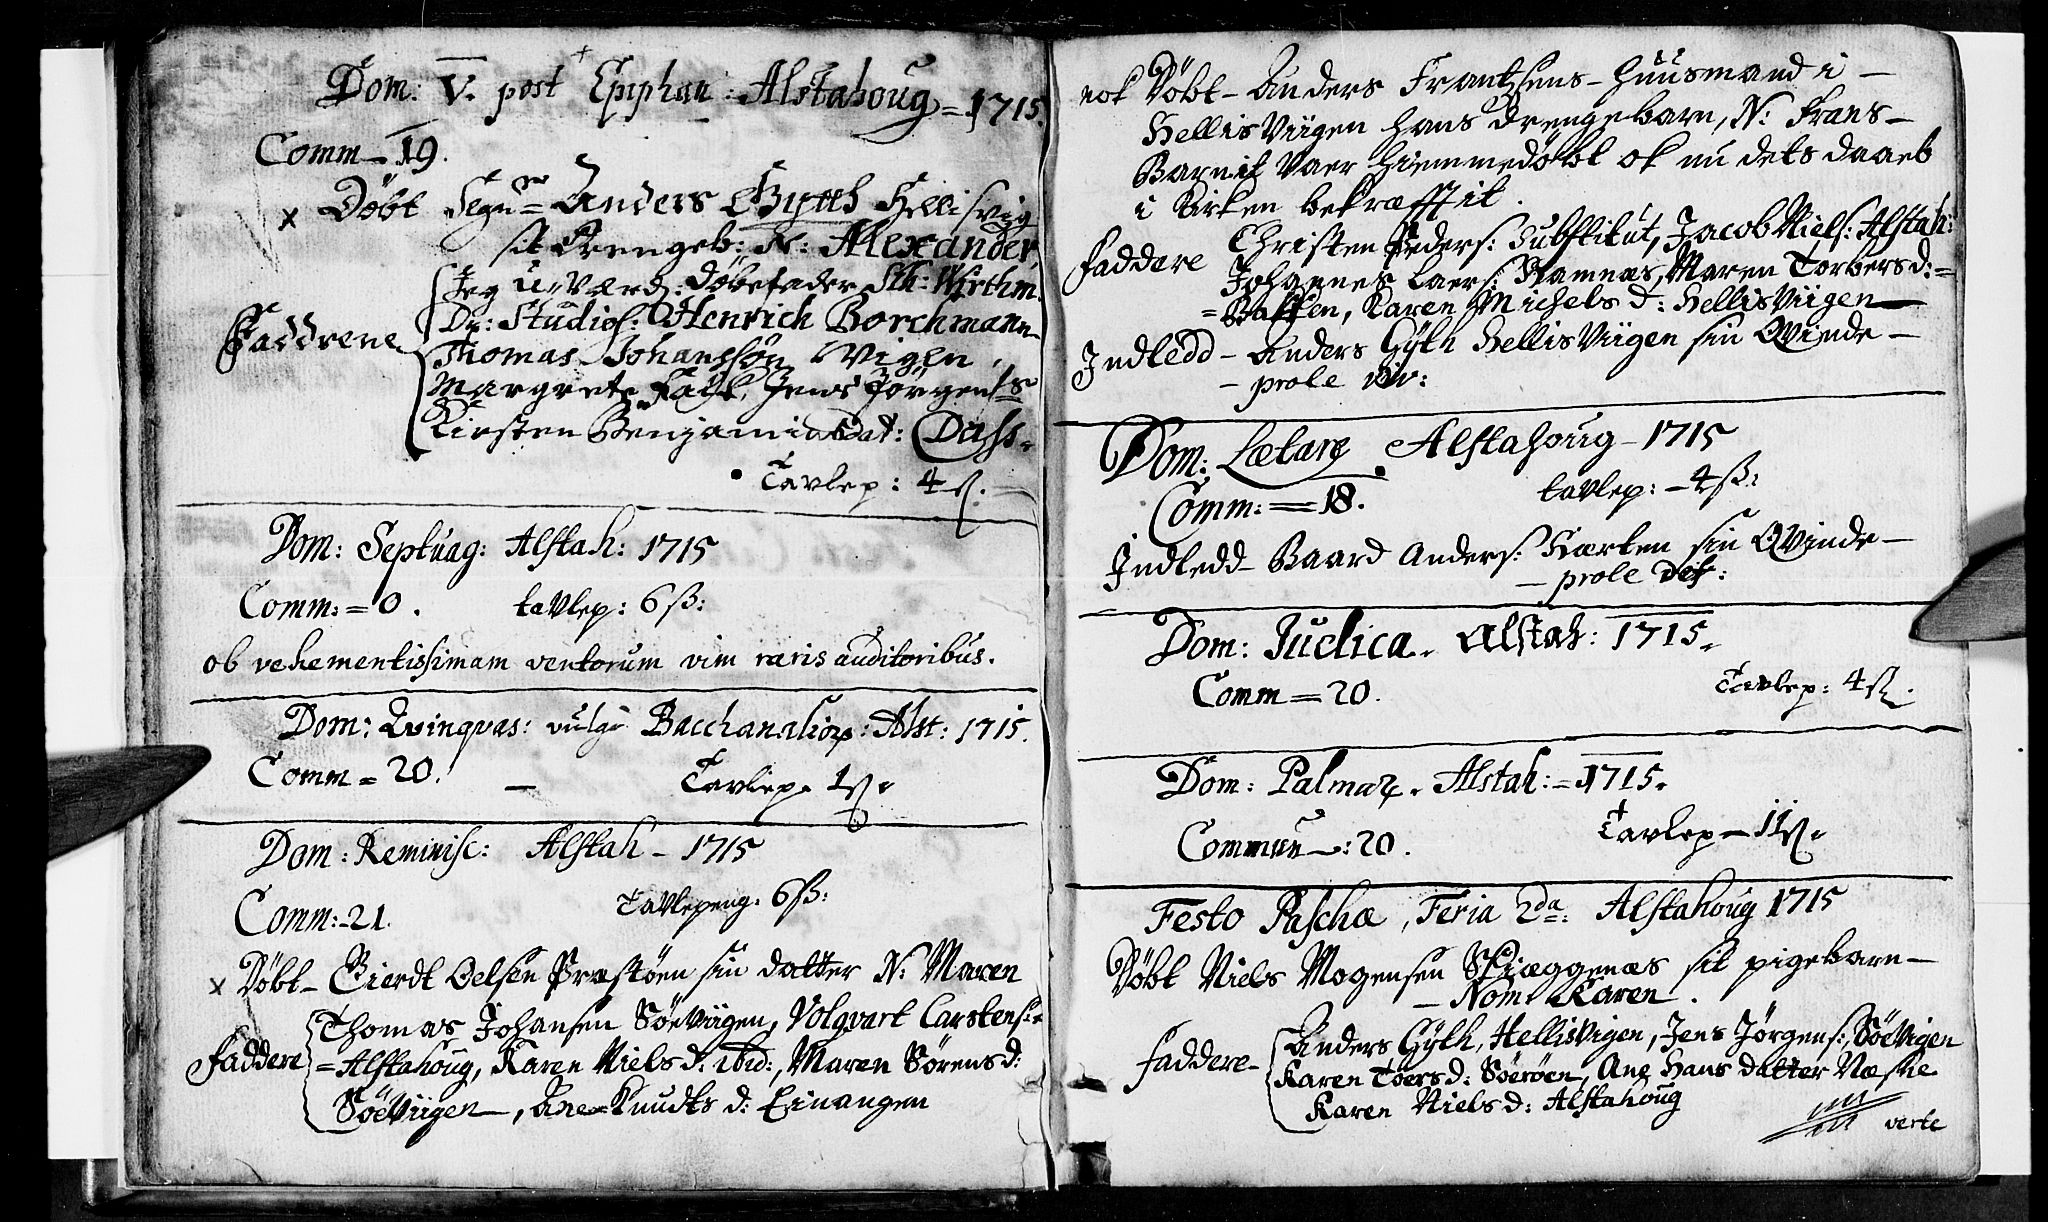 Dom: V. post Epiphan: Alstahoug = 1715.
Comm - 19.
x Døbt Segnr = Anders Gytth Hellisvig
sit Drengeb: N: Alexander
Jeg u-værd: døbefader Sth: Wirthm.
Dn: Studios: Henrich Borchmann
Faddrene
Thomas Johansøn Vigen,
Margrete Falk, Jens Jørgens:s
Kirsten Benjaminsdat: Dass.
Tavlep: 4 ß.
Dom: Septuag: Alstah: 1715
Comm: = 0. tavlep: 6 ß:
ob vehementissimam ventorum vim raris auditoribus.
Dom: Qvinqvas: vulgo Bacchanalior: Alst: 1715.
Comm = 20. - Tavlep. 1 ß.
Dom: Reminisc: Alstah - 1715
Comm: - 21. Tavlepeng. 6 ß:
x Døbt - Gierdt Oelsen Præstøen sin datter N: Maren
Thomas Johansen Søeviigen, Volqvart Carstens:
Faddere = Alstahoug, Karen Nielsd: ibid:, Maren Sørensd:
Søeviigen -, Ane Knudts d: Einangen
nok Døbt - Anders Frantzsens - Huusmand i -
Hellisviigen hans drengebarn, N: Frans -
Barnit vaer hiemmedøbt ok nu dets daab
i Kirken bekræfftit.
Christen Peders: Substitut, Jacob Niels: Alstah:
Faddere Johannes Laers: Kamnæs, Maren Torbersd: =
= Batten, Karen Michels d: Hellisviigen -
Indledd - Anders Gyth Hellisviigen sin Qvinde -
- prole viv:
Dom: Lætare. Alstahoug - 1715
Comm: = 18. tavlep: - 4 ß:
Indledd Baard Anders: Hærten sin Qvinde -
- prole def:
Dom: Judica. Alstah: 1715.
Comm = 20. Tavlep: 4 ß.
Dom: Palmar. Alstah: = 1715.
Commun -: 20. Tavlep - 11 ß.
Festo Paschæ, Feria 2da: Alstahoug 1715
Døbt Niels Mogensen Skiæggenæs sit pigebarn -
- Nom: Karen.
Anders Gyth, Hellisvigen, Jens Jørgens:, Søevigen
Faddere - Karen Toersd: Søerøen, Ane Hans datter Næsne
Karen Nielsd: Alstahoug
verte